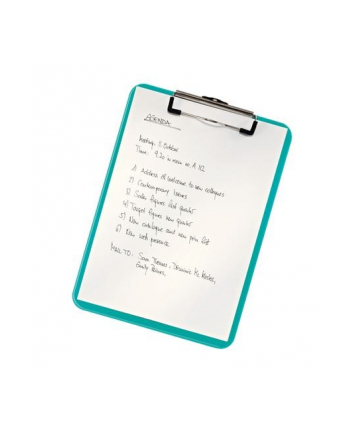 AGENDA
Meeting: 5. October
Time: 9.30 in room no A 112
1) Address of welcome to new colleagues
2) Contemporary issues
3) Sales figures last quarter
4) Target figures new quarter
5) New catalogue and new price list
6) New web presence
MAIL TO: Sam Thomas, Dominic Mc
Emily